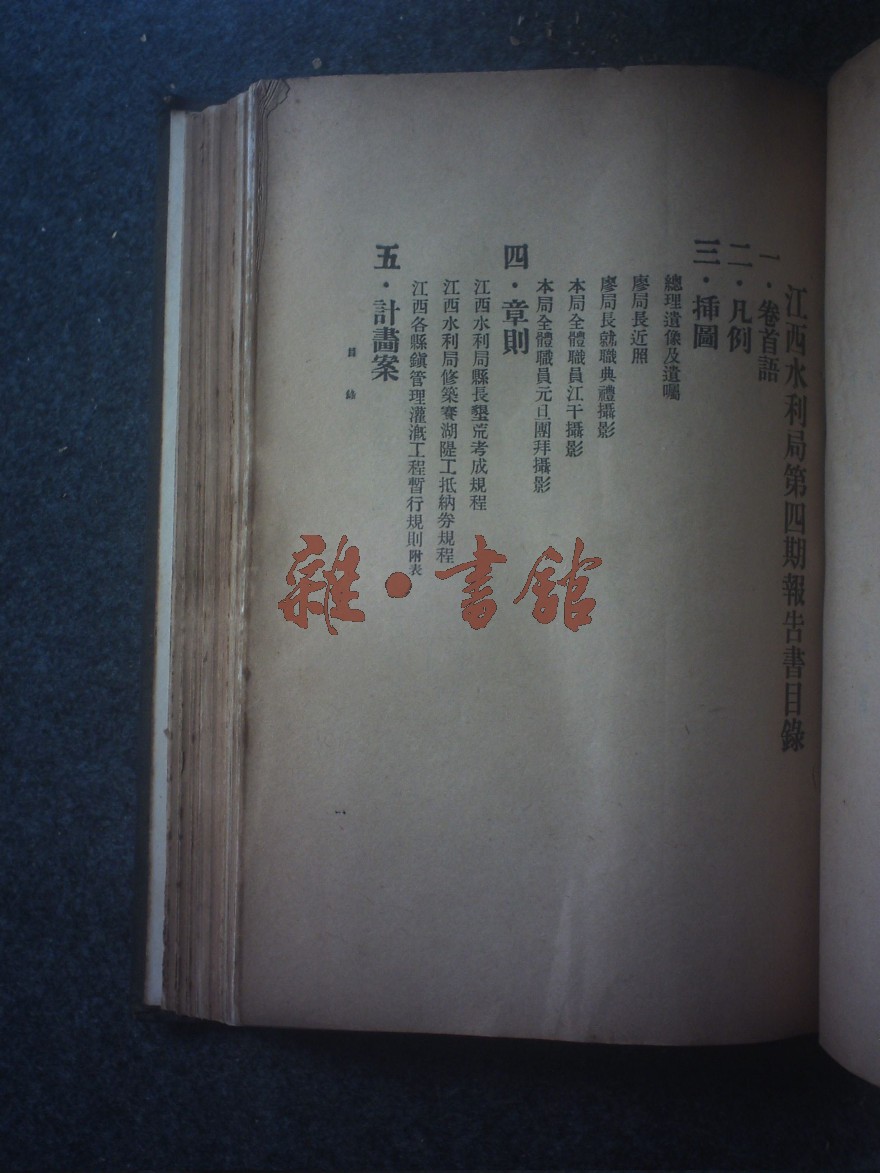 江西水利局第四期報告書目錄
一．卷首語
二．凡例
三．揷圖
總理遺像及遺囑
廖局長近照
廖局長就職典禮攝影
本局全體職員江干攝影
本局全體職員元旦團拜攝影
四．章則
江西水利局縣長墾荒考成規程
江西水利局修築賽湖隄工抵納券規程
江西各縣鎭管理灌漑工程暫行規則附表
五．計畫案
目錄
一
雜·書館